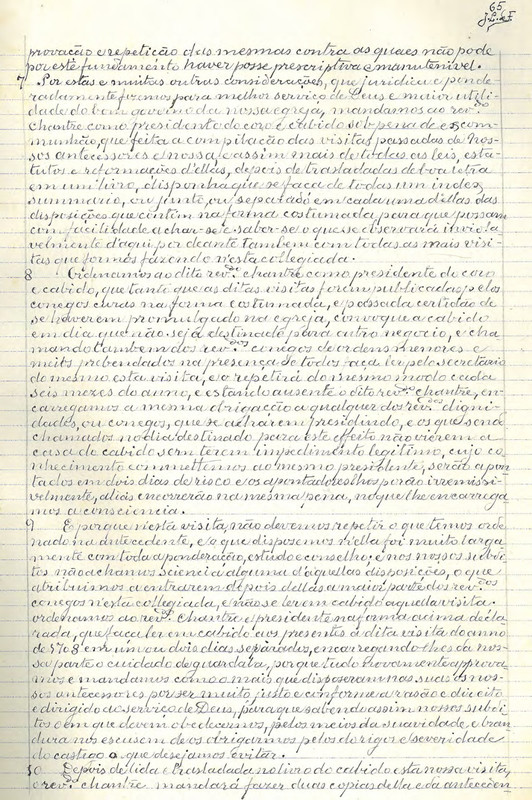 65
provação e repetição das mesmas contra as quaes não pode
por este fundamento haver posse prescriptiva e manutenivel.
7 Por estas e muitas outras considerações, que juridica e ponde-
radamente fizemos para melhor serviço de Deus e maior utili-
dade do bom governo da nossa egreja, mandamos ao rev.do
chantre como presidente do coro e cabido sob pena de excom-
munhão, que feita a compilação das visitas passadas de nos-
sos antecessores e nossa e assim mais de todas as leis, esta-
tutos e reformações d'ellas, depois de trasladadas de boa letra
em um livro, disponha que se faça de todas um index
summario, ou junto, ou separado em cada uma d'ellas das
disposições que contem na forma costumada, para que possam
com facilidade achar-se e saber-se o que se observará invio-la
velmente d'aqui por deante tambem com todas as mais visi-
tas que formos fazendo n'esta collegiada.
8 Ordenamos ao dito rev.do chantre como presidente do coro
e cabido, que tanto que as ditas visitas forem publicadas pelos
conegos curas na forma costumada, e passada certidão de
se haverem promulgado na egreja, convoque a cabido
em dia que não seja destinado para outro negocio, e cha-
mando tambem dos rev.dos conegos de ordens menores e
meios prebendados na presença de todos faça ler pelo secretario
do mesmo esta visita, e o repetirá do mesmo modo cada
seis mezes do anno, e estando ausente o dito rev.do chantre, en-
carregamos a mesma obrigação a qualquer dos rev.dos digni-
dades, ou conegos, que se acharem presidindo, e os que sendo
chamados no dia destinado para este effeito não vierem a
casa do cabido sem terem impedimento legitimo, cujo co-
nhecimento commettemos ao mesmo presidente, serão apon-
tados em dois dias de risco e os apontadores lhos porão irremissi-
velmente, aliás encorrerão na mesma pena, no que lhe encarrega-
mos a consciencia.
9 E porque n'esta visita, não devemos repetir o que temos orde-
nado na antecedente, e o que dispozemos n'ella foi muito larga-
mente com toda a ponderação, estudo e conselho, e nos nossos subdi-
tos não achamos sciencia alguma d'aquellas disposições, o que
atribuimos a entrarem depois d'ellas a maior parte dos rev.dos
conegos n'esta collegiada, e não se lerem cabido aquella visita.
ordenamos ao rev.do chantre e presidente na forma acima decla-
rada, que faça ler em cabido aos presentes a dita visita do anno
de 1708 em um ou dois dias separados, encarregando-lhes da nos-
sa parte o cuidado de guardala, porque tudo novamente approva-
mos e mandamos como o mais que disposeram nas suas os nos-
sos antecessores por ser muito justo e conforme a rasão e direito
e dirigido ao serviço de Deus, para que sabendo assim nossos subdi-
tos o em que devem obedecernos, pelos meios da suavidade, e bran-
dura nos escusem de os obrigarmos pelos do rigor e severidade
do castigo o que desejamos evitar.
10 Depois de lida e trasladada no livro do cabido esta nossa visita,
o rev.do chantre mandará fazer duas copias d'ella e da anteceden-